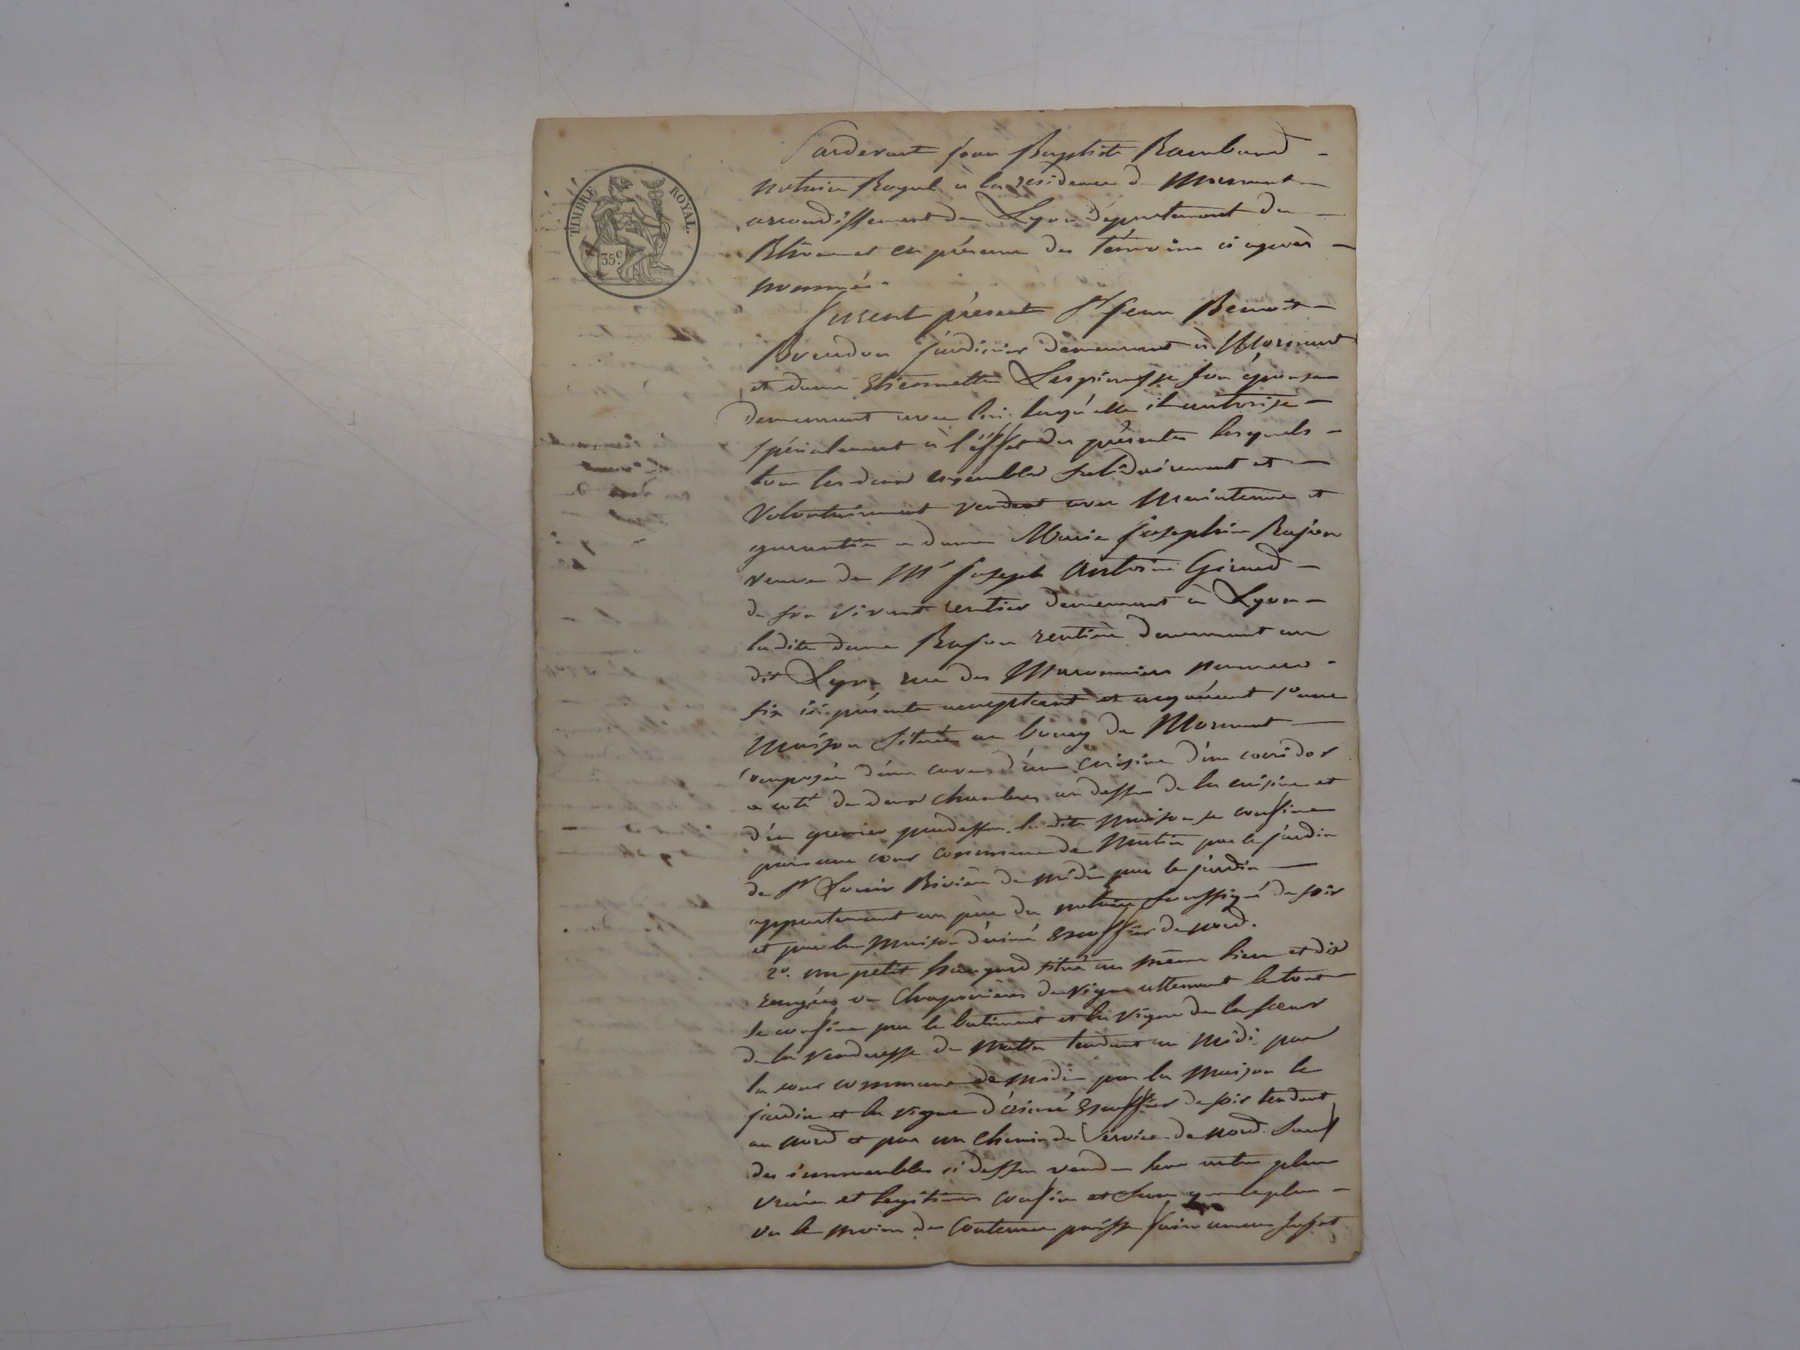 TIMBRE ROYAL.
35c.
Pardevant Jean Baptiste Rambaud
notaire Royal à la résidence de Mornant
arrondissement de Lyon département du
Rhône et en présence des témoins ci après
nommés.
Furent présents Sr Jean Benoit
jardinier demeurant à Mornant
et dame Etiennette Lespinasse son épouse
demeurant avec lui laquelle il autorise
spécialement à l'effet des présentes lesquels
tous les deux ensemble solidairement et
volontairement vendent avec maintenue et
garantie a dame Marie Josephine Rajon
veuve de Mr Joseph Antoine Girard
de son vivant rentier demeurant à Lyon
ladite dame Rajon rentière demeurant au
dit Lyon rue des Maronniers numero
six ici présente acceptant et acquérant 1o une
maison située au bourg de Mornant
composée d'une cave d'une cuisine d'un corridor
a coté de deux chambres au dessus de la cuisine et
d'un grenier pardessus la dite maison se confine
par une cour commune de matin par le jardin
de Sr Louis Rivière de midi par le jardin
appartenant au père du notaire soussigné de soir
et par la maison d'aimé Escoffier de nord.
2o. un petit hangard situé au même lieu et dix
rangées ou de vigne attenant le tout
se confine par le batiment et la vigne de la soeur
de la venderesse de matin tendant au midi par
la cour commune de midi par la maison le
jardin et la vigne d'aimé Escoffier de soir tendant
au nord et par un chemin de service de nord. Sauf
des immeubles ci dessus vendus leurs autres plus
vrais et legitimes confins et sans que le plus
ou le moins de contenue puisse faire aucun